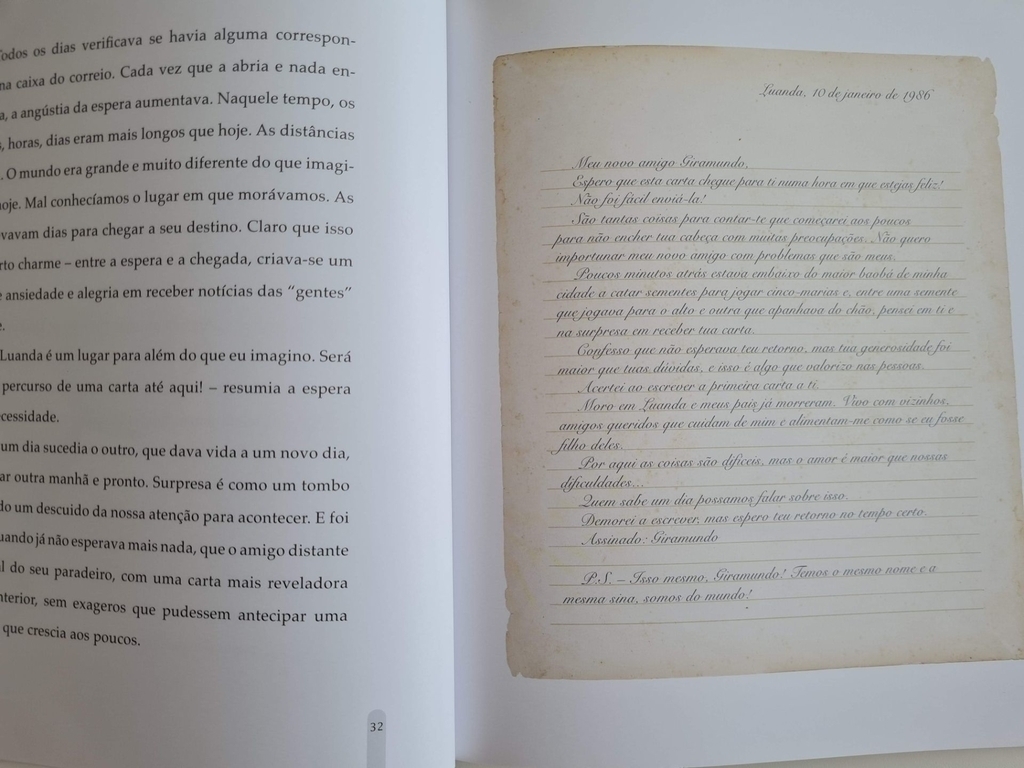 Todos os dias verificava se havia alguma correspon-
na caixa do correio. Cada vez que a abria e nada en-
a, a angústia da espera aumentava. Naquele tempo, os
s, horas, dias eram mais longos que hoje. As distâncias
. O mundo era grande e muito diferente do que imagi-
hoje. Mal conhecíamos o lugar em que morávamos. As
vavam dias para chegar a seu destino. Claro que isso
rto charme – entre a espera e a chegada, criava-se um
e ansiedade e alegria em receber notícias das “gentes”
e.
Luanda é um lugar para além do que eu imagino. Será
percurso de uma carta até aqui! – resumia a espera
cessidade.
um dia sucedia o outro, que dava vida a um novo dia,
ar outra manhã e pronto. Surpresa é como um tombo
do um descuido da nossa atenção para acontecer. E foi
uando já não esperava mais nada, que o amigo distante
l do seu paradeiro, com uma carta mais reveladora
nterior, sem exageros que pudessem antecipar uma
que crescia aos poucos.
32
Luanda, 10 de janeiro de 1986
Meu novo amigo Giramundo,
Espero que esta carta chegue para ti numa hora em que estejas feliz!
Não foi fácil enviá-la!
São tantas coisas para contar-te que começarei aos poucos
para não encher tua cabeça com muitas preocupações. Não quero
importunar meu novo amigo com problemas que são meus.
Poucos minutos atrás estava embaixo do maior baobá de minha
cidade a catar sementes para jogar cinco-marias e, entre uma semente
que jogava para o alto e outra que apanhava do chão, pensei em ti e
na surpresa em receber tua carta.
Confesso que não esperava teu retorno, mas tua generosidade foi
maior que tuas dúvidas, e isso é algo que valorizo nas pessoas.
Acertei ao escrever a primeira carta a ti.
Moro em Luanda e meus pais já morreram. Vivo com vizinhos,
amigos queridos que cuidam de mim e alimentam-me como se eu fosse
filho deles.
Por aqui as coisas são difíceis, mas o amor é maior que nossas
dificuldades...
Quem sabe um dia possamos falar sobre isso.
Demorei a escrever, mas espero teu retorno no tempo certo.
Assinado: Giramundo
P.S. – Isso mesmo, Giramundo! Temos o mesmo nome e a
mesma sina, somos do mundo!